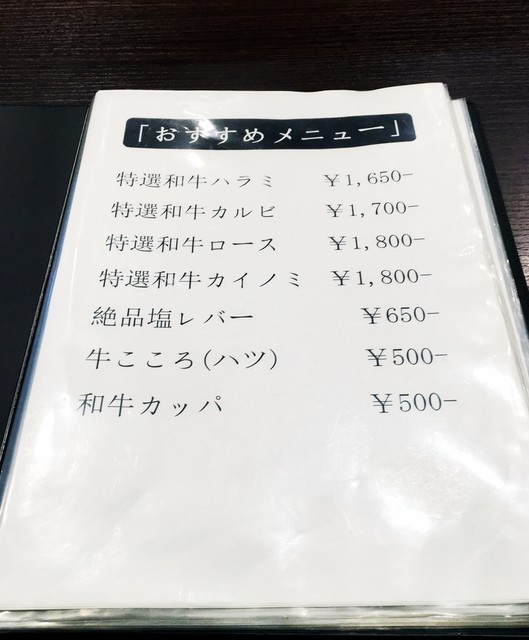 「おすすめメニュー」
特選和牛ハラミ ￥1,650-
特選和牛カルビ ￥1,700-
特選和牛ロース ￥1,800-
特選和牛カイノミ ￥1,800-
絶品塩レバー ￥650-
牛こころ(ハツ) ￥500-
和牛カッパ ￥500-